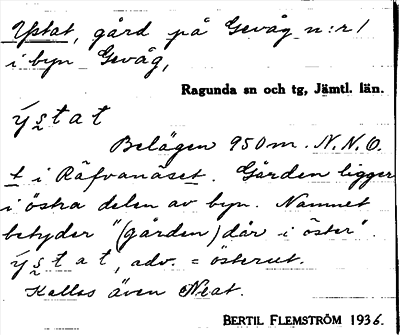 Ystat, gård på Gevåg n:r 1
i byn Gevåg,
Ragunda sn och tg, Jämtl. län.
ýstat
Belägen 950 m. N.N.O.
t i Räfvanäset. Gården ligger
i östra delen av byn. Namnet
betyder "(gården) där i öster".
ýstat, adv. = österut.
Kallas även Neat.
BERTIL FLEMSTRÖM 1936.